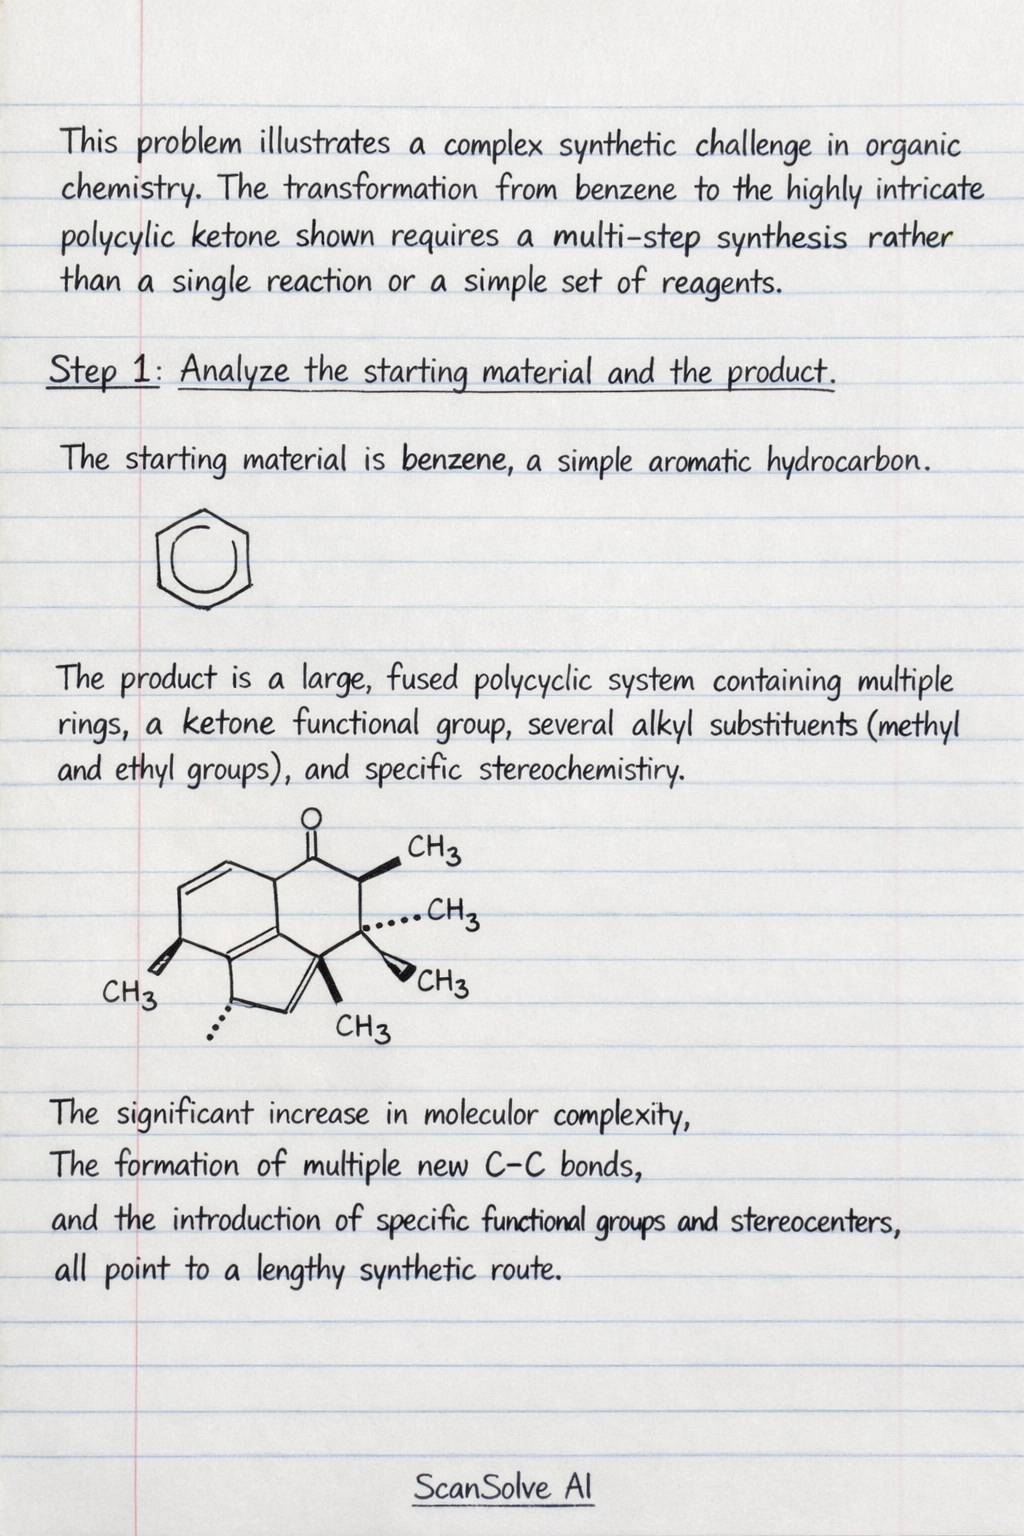 This problem illustrates a complex synthetic challenge in organic
chemistry. The transformation from benzene to the highly intricate
polycylic ketone shown requires a multi-step synthesis rather
than a single reaction or a simple set of reagents.
Step 1: Analyze the starting material and the product.
The starting material is benzene, a simple aromatic hydrocarbon.
The product is a large, fused polycyclic system containing multiple
rings, a ketone functional group, several alkyl substituents (methyl
and ethyl groups), and specific stereochemistiry.
O
CH3
CH3
CH3
CH3
CH3
The significant increase in moleculor complexity,
The formation of multiple new C-C bonds,
and the introduction of specific functional groups and stereocenters,
all point to a lengthy synthetic route.
ScanSolve AI